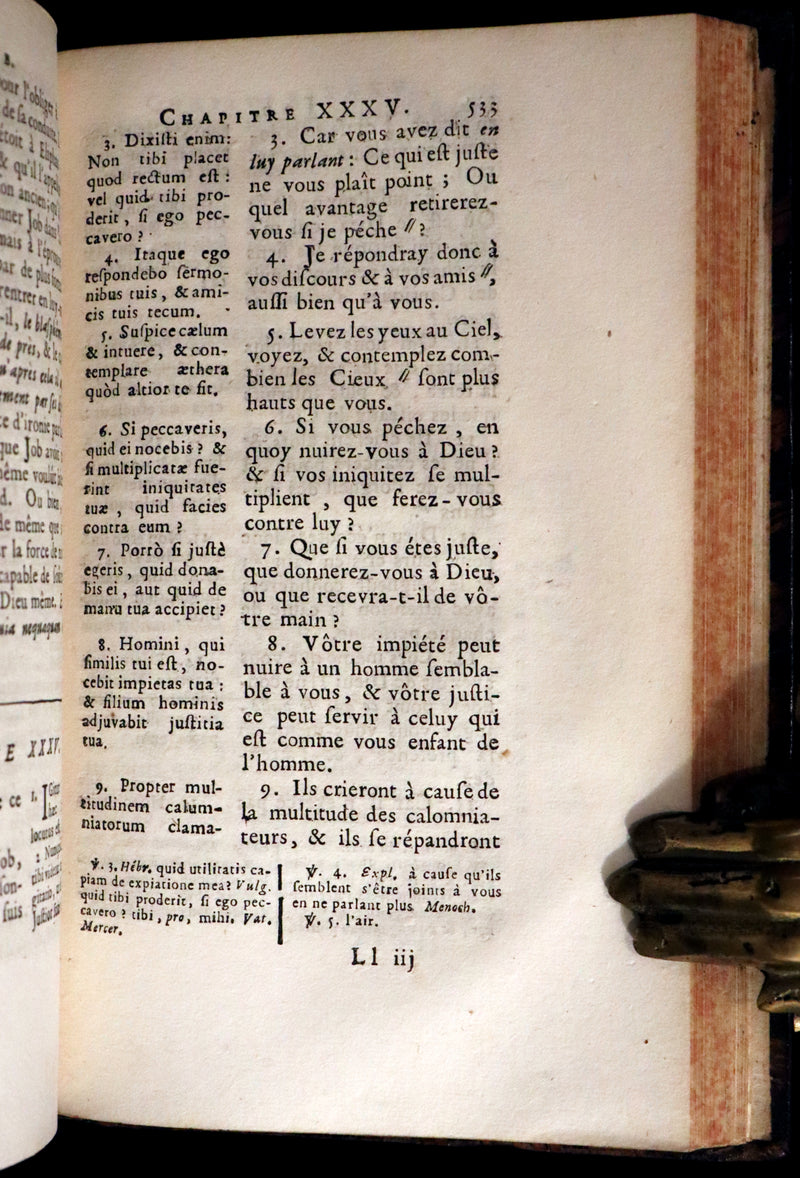 CHAPITRE XXXV. 533
3. Dixiſti enim:
Non tibi placet
quod rectum eſt :
vel quid tibi pro-
derit, ſi ego pec-
cavero ?
4. Itaque ego
reſpondebo ſermo-
nibus tuis, & ami-
cis tuis tecum.
5. Suſpice cælum
& intuere, & con-
templare æthera
quòd altior te ſit.
6. Si peccaveris,
quid ei nocebis ? &
ſi multiplicatæ fue-
rint iniquitates
tuæ , quid facies
contra eum ?
7. Porrò ſi juſtè
egeris, quid dona-
bis ei, aut quid de
manu tua accipiet ?
8. Homini, qui
ſimilis tui eſt, no-
cebit impietas tua :
& filium hominis
adjuvabit juſtitia
tua.
9. Propter mul-
titudinem calum-
niatorum clama-
3. Car vous avez dit en
luy parlant : Ce qui eſt juſte
ne vous plaît point ; Ou
quel avantage retirerez-
vous ſi je péche // ?
4. Je répondray donc à
vos diſcours & à vos amis //,
auſſi bien qu'à vous.
5. Levez les yeux au Ciel,
voyez, & contemplez com-
bien les Cieux // ſont plus
hauts que vous.
6. Si vous péchez , en
quoy nuirez-vous à Dieu ?
& ſi vos iniquitez ſe mul-
tiplient , que ferez-vous
contre luy ?
7. Que ſi vous étes juſte,
que donnerez-vous à Dieu,
ou que recevra-t-il de vô-
tre main ?
8. Vôtre impiété peut
nuire à un homme ſembla-
ble à vous, & vôtre juſti-
ce peut ſervir à celuy qui
eſt comme vous enfant de
l'homme.
9. Ils crieront à cauſe de
la multitude des calomnia-
teurs, & ils ſe répandront
℣. 3. Hébr. quid utilitatis ca-
piam de expiatione mea? Vulg.
quid tibi proderit, ſi ego pec-
cavero ? tibi, pro, mihi. Vat.
Mercer.
℣. 4. Expl. à cauſe qu'ils
ſemblent s'être joints à vous
en ne parlant plus. Menoch.
℣. 5. l'air.
Ll iij